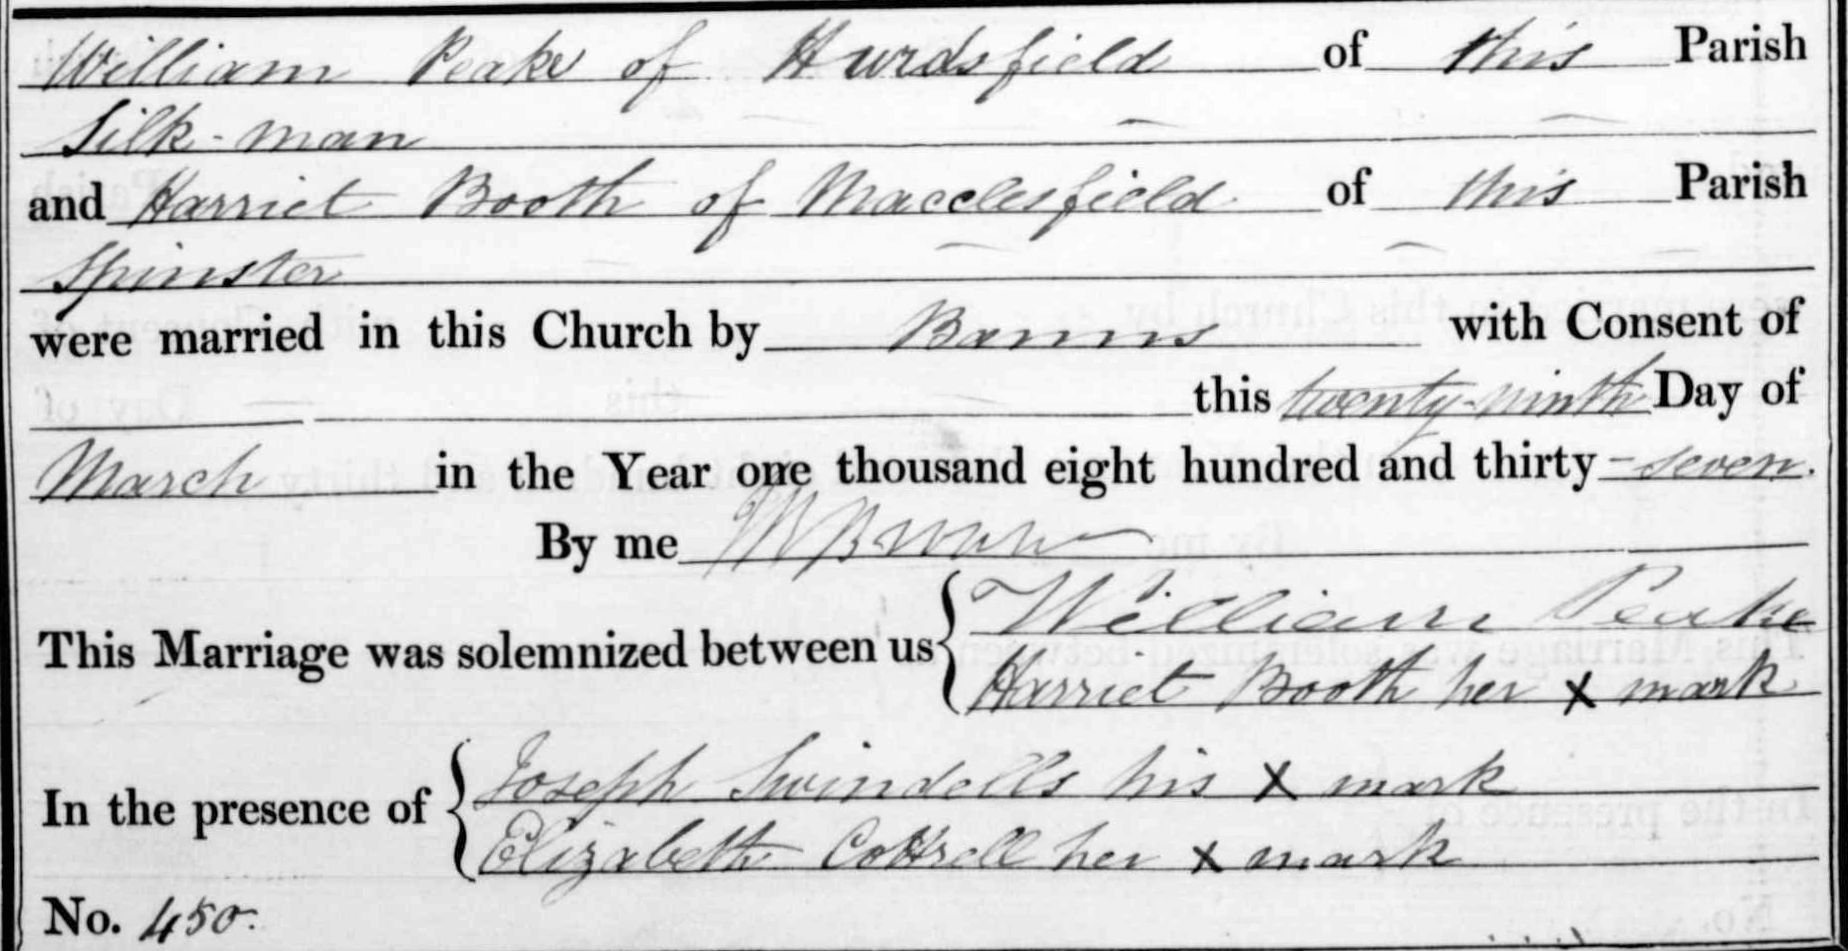 William Peake of Hurdsfield of this Parish
Silk-man
and Harriet Booth of Macclesfield of this Parish
Spinster
were married in this Church by Banns with Consent of
this twenty-ninth Day of
March in the Year one thousand eight hundred and thirty-seven.
By me
This Marriage was solemnized between us { William Peake
Harriet Booth her X mark
In the presence of { Joseph Swindells his X mark
Elizabeth Cottrell her X mark
No. 450.